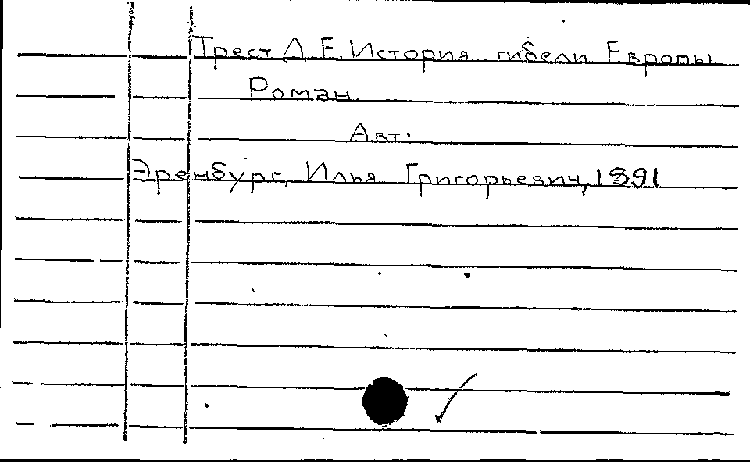 Трест Д.Е. История гибели Европы
Роман.
Авт:
Эренбург, Илья Григорьевич, 1891